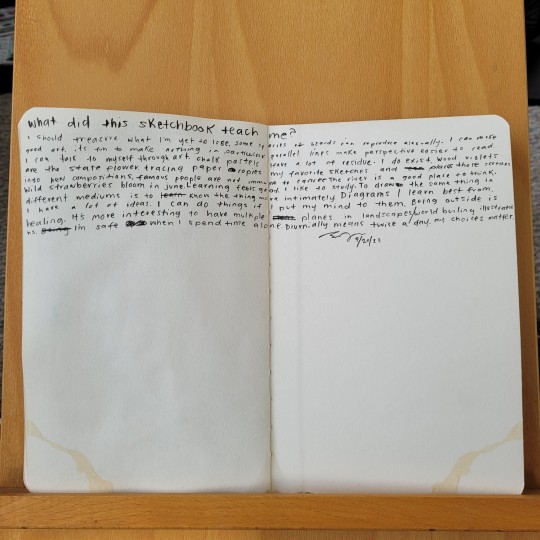 what did this sketchbook teach me?
I should treasure what I'm yet to lose. some species of lizards can reproduce asexually. I can make
good art. its fun to make nothing in particular parallel lines make perspective easier to read.
I can talk to myself through art. chalk pastels leave a lot of residue. I do exist. wood violets
are the state flower. tracing paper copies my favorite sketches and places those sketches
into new compositions. famous people are not immune to cancer. the river is a good place to think.
wild strawberries bloom in june. Learning feels good. I like to study. To draw the same thing in
different mediums is to know the thing more intimately. Diagrams I learn best from.
I have a lot of ideas. I can do things if I put my mind to them. Being outside is
healing. It's more interesting to have multiple planes in landscapes/world building illustrations.
I'm safe when I spend time alone. Diurnally means twice a day. my choices matter.
9/21/23